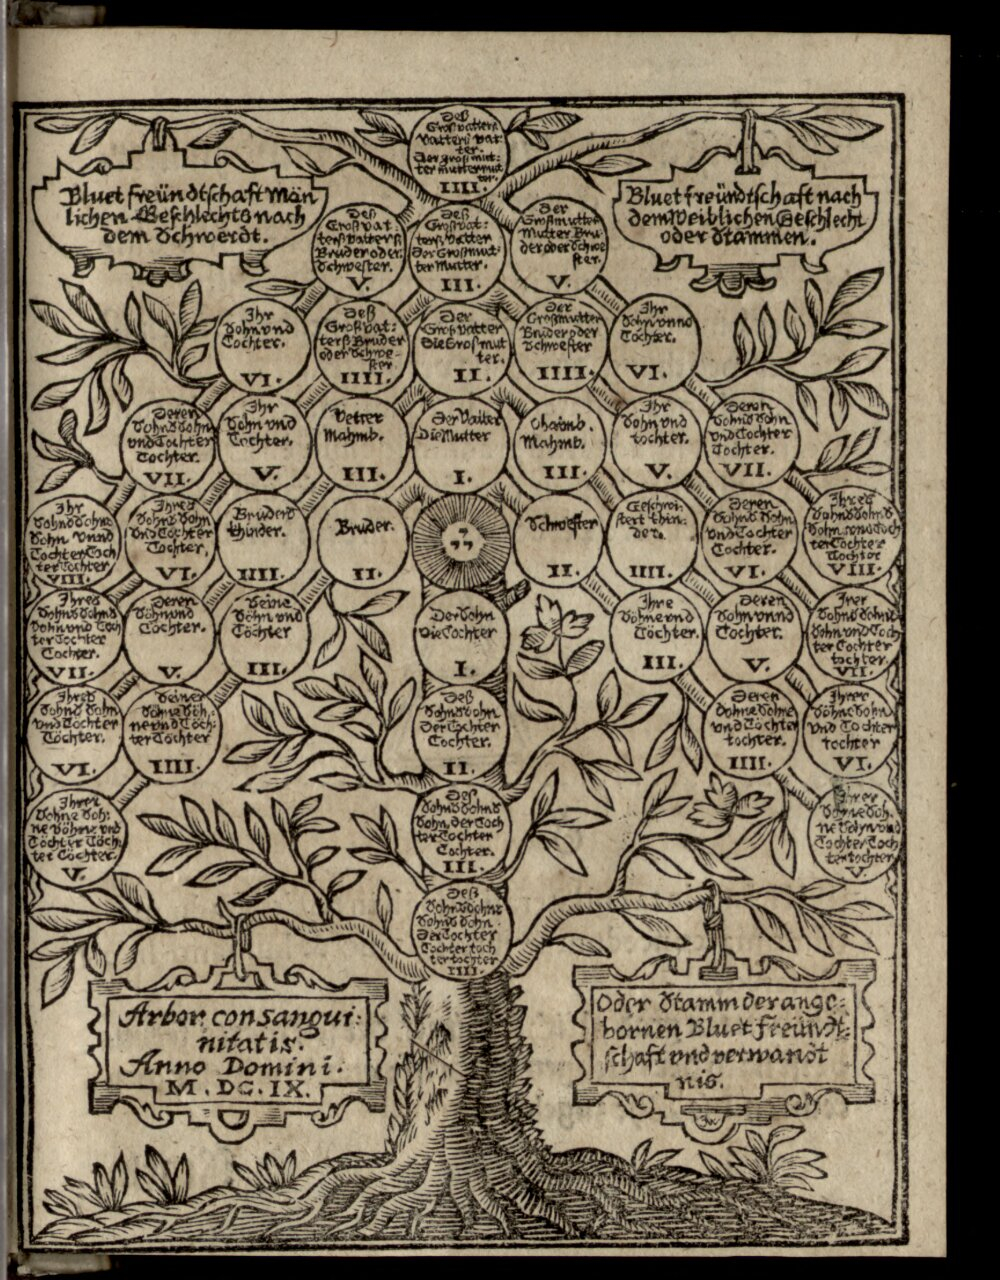 Deß
Großvatters
Vatters vat-
ter.
Der großmut-
ter muttermut
ter.
IIII.
Bluet freündtschafft Män
lichen Geschlechts nach
dem Schwerdt.
Bluet freündtschafft nach
dem Weiblichen Geschlecht
oder Stammen.
Deß
Großvat:
terß vatterß
Bruder oder.
Schwester.
V.
Deß
Großvat:
terß Vatter
Der Großmut-
ter Mutter.
III.
Der
Großmutter
Mutter Bru-
der oder Schwe
ster.
V.
Ihr
Sohn vnd
Tochter.
VI.
Deß
Großvat:
terß Bruder
oder Schwe-
ster
IIII.
Der
Großvatter
Die Großmut
ter.
II.
Der
Großmutter
Bruder oder
Schwester
IIII.
Ihr
Sohn vnnd
Tochter.
VI.
Deren
Sohns Sohn
vnd Tochter
Tochter.
VII.
Ihr
Sohn vnd
Tochter.
V.
Vetter
Mahmb.
III.
Der Vatter
Die Mutter
I.
Mahmb.
III.
Ihr
Sohn vnd
tochter.
V.
Deren
Sohns Sohn
vnd Tochter
Tochter.
VII.
Ihr
Sohns Sohns
Sohn vnnd
Tochter Toch
ter Tochter
VIII.
Ihres
Sohns Sohn
vnd Tochter
Tochter,
VI.
Bruders
Khinder.
IIII.
Bruder.
II.
Schwester
II.
Geschwi-
stert Khin-
der.
IIII.
Deren
Sohns Sohn
vnd Tochter
Tochter.
VI.
Ihres
Sohns Sohns
Sohn vnnd Toch
ter Tochter
Tochter
VIII.
Ihres
Sohns Sohns
Sohn vnd Toch
ter Tochter
Tochter.
VII.
Deren
Söhn vnd
Tochter.
V.
Seine
Söhn vnd
Töchter
III.
Der Sohn
Die Tochter
I.
Ihre
Söhne vnd
Töchter.
III.
Deren
Sohn vnnd
Tochter.
V.
Irer
Sohns Sohns
Sohn vnd Toch
ter Tochter
tochter.
VII.
Ihres
Sohns Sohn
vnd Tochter
Töchter.
VI.
Seiner
Söhne Söh-
ne vnd Töch:
ter Töchter
IIII.
Deß
Sohns Sohn
Der Tochter
Tochter.
II.
Deren
Sohne Sohne
vnd Tochter
tochter.
IIII.
Ihrer
Söhne Sohn
vnd Tochter
tochter
VI.
Ihrer
Söhne Söh:
ne Söhne vnd
Töchter Töch:
ter Töchter.
V.
Deß
Sohns Sohns
Sohn, der Toch
ter Tochter
Tochter.
III.
Ihrer
Sohne Söh
ne Sohn vnd
Tochter Toch
ter tochter
V.
Deß
Sohns Sohns
Sohns Sohn.
Der Tochter
Tochter toch
ter tochter
IIII.
Arbor consangui:
nitatis.
Anno Domini.
M. DC. IX.
Oder Stamm der ange:
bornen Bluet freündt:
schafft vnd verwandt
nis.